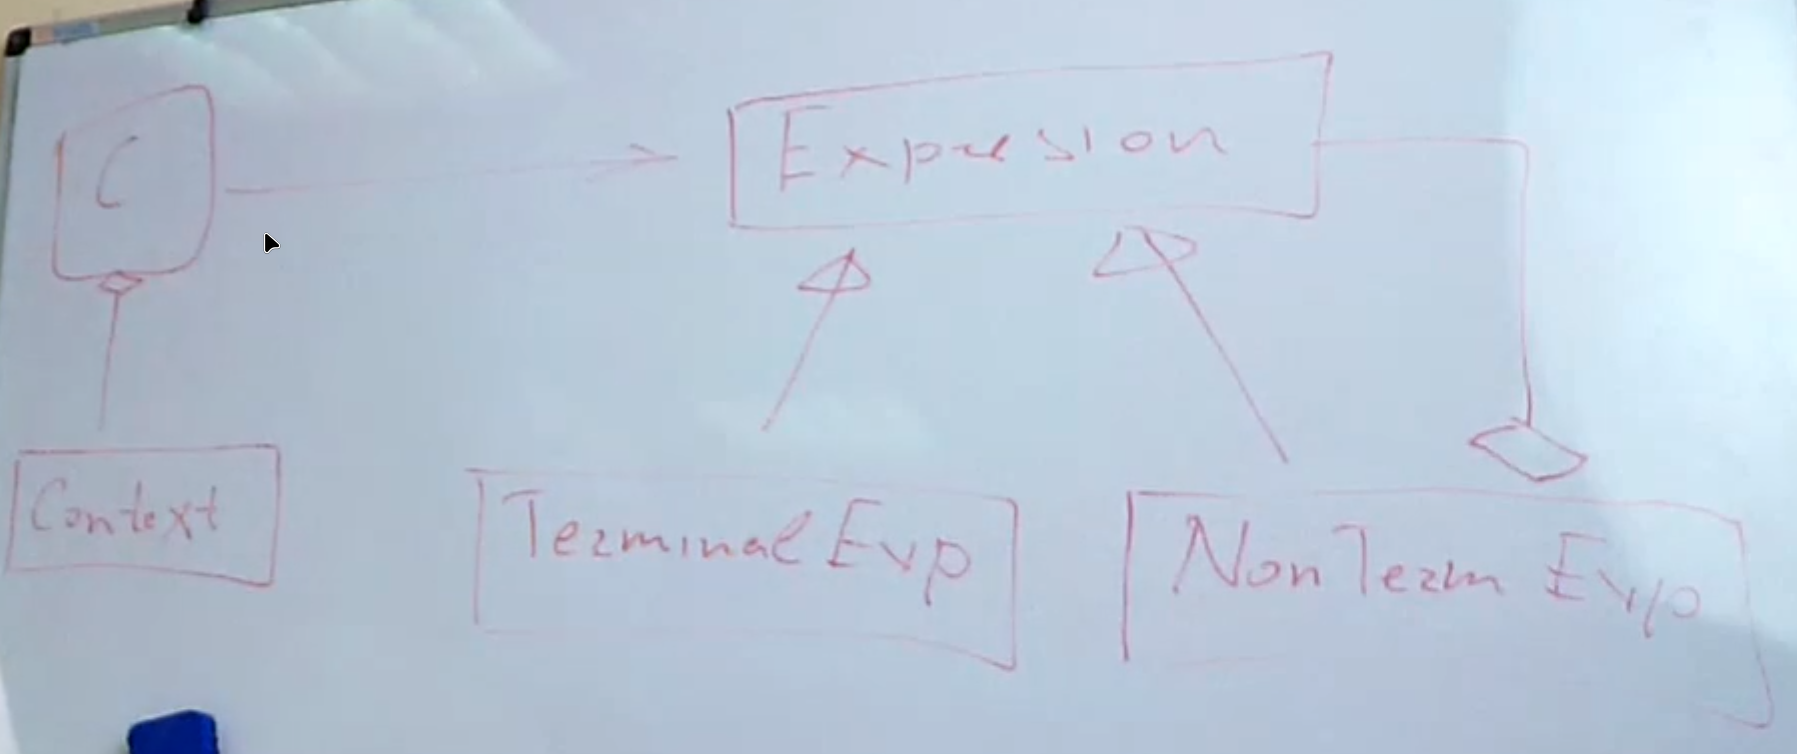 C
Expresion
Context
Terminal Exp
Non Term Exp